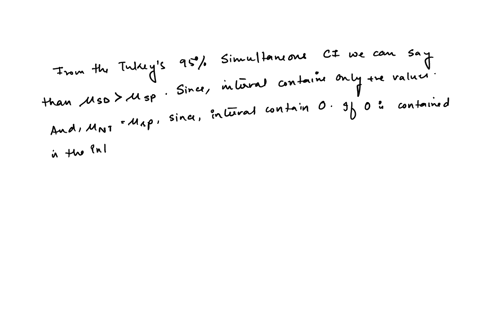 From the Tukey's 95% Simultaneous CI we can say
than μSD > μSP. Since, interval contains only +ve values.
And, μNT = μSP, since, interval contain 0. If 0 is contained
in the int